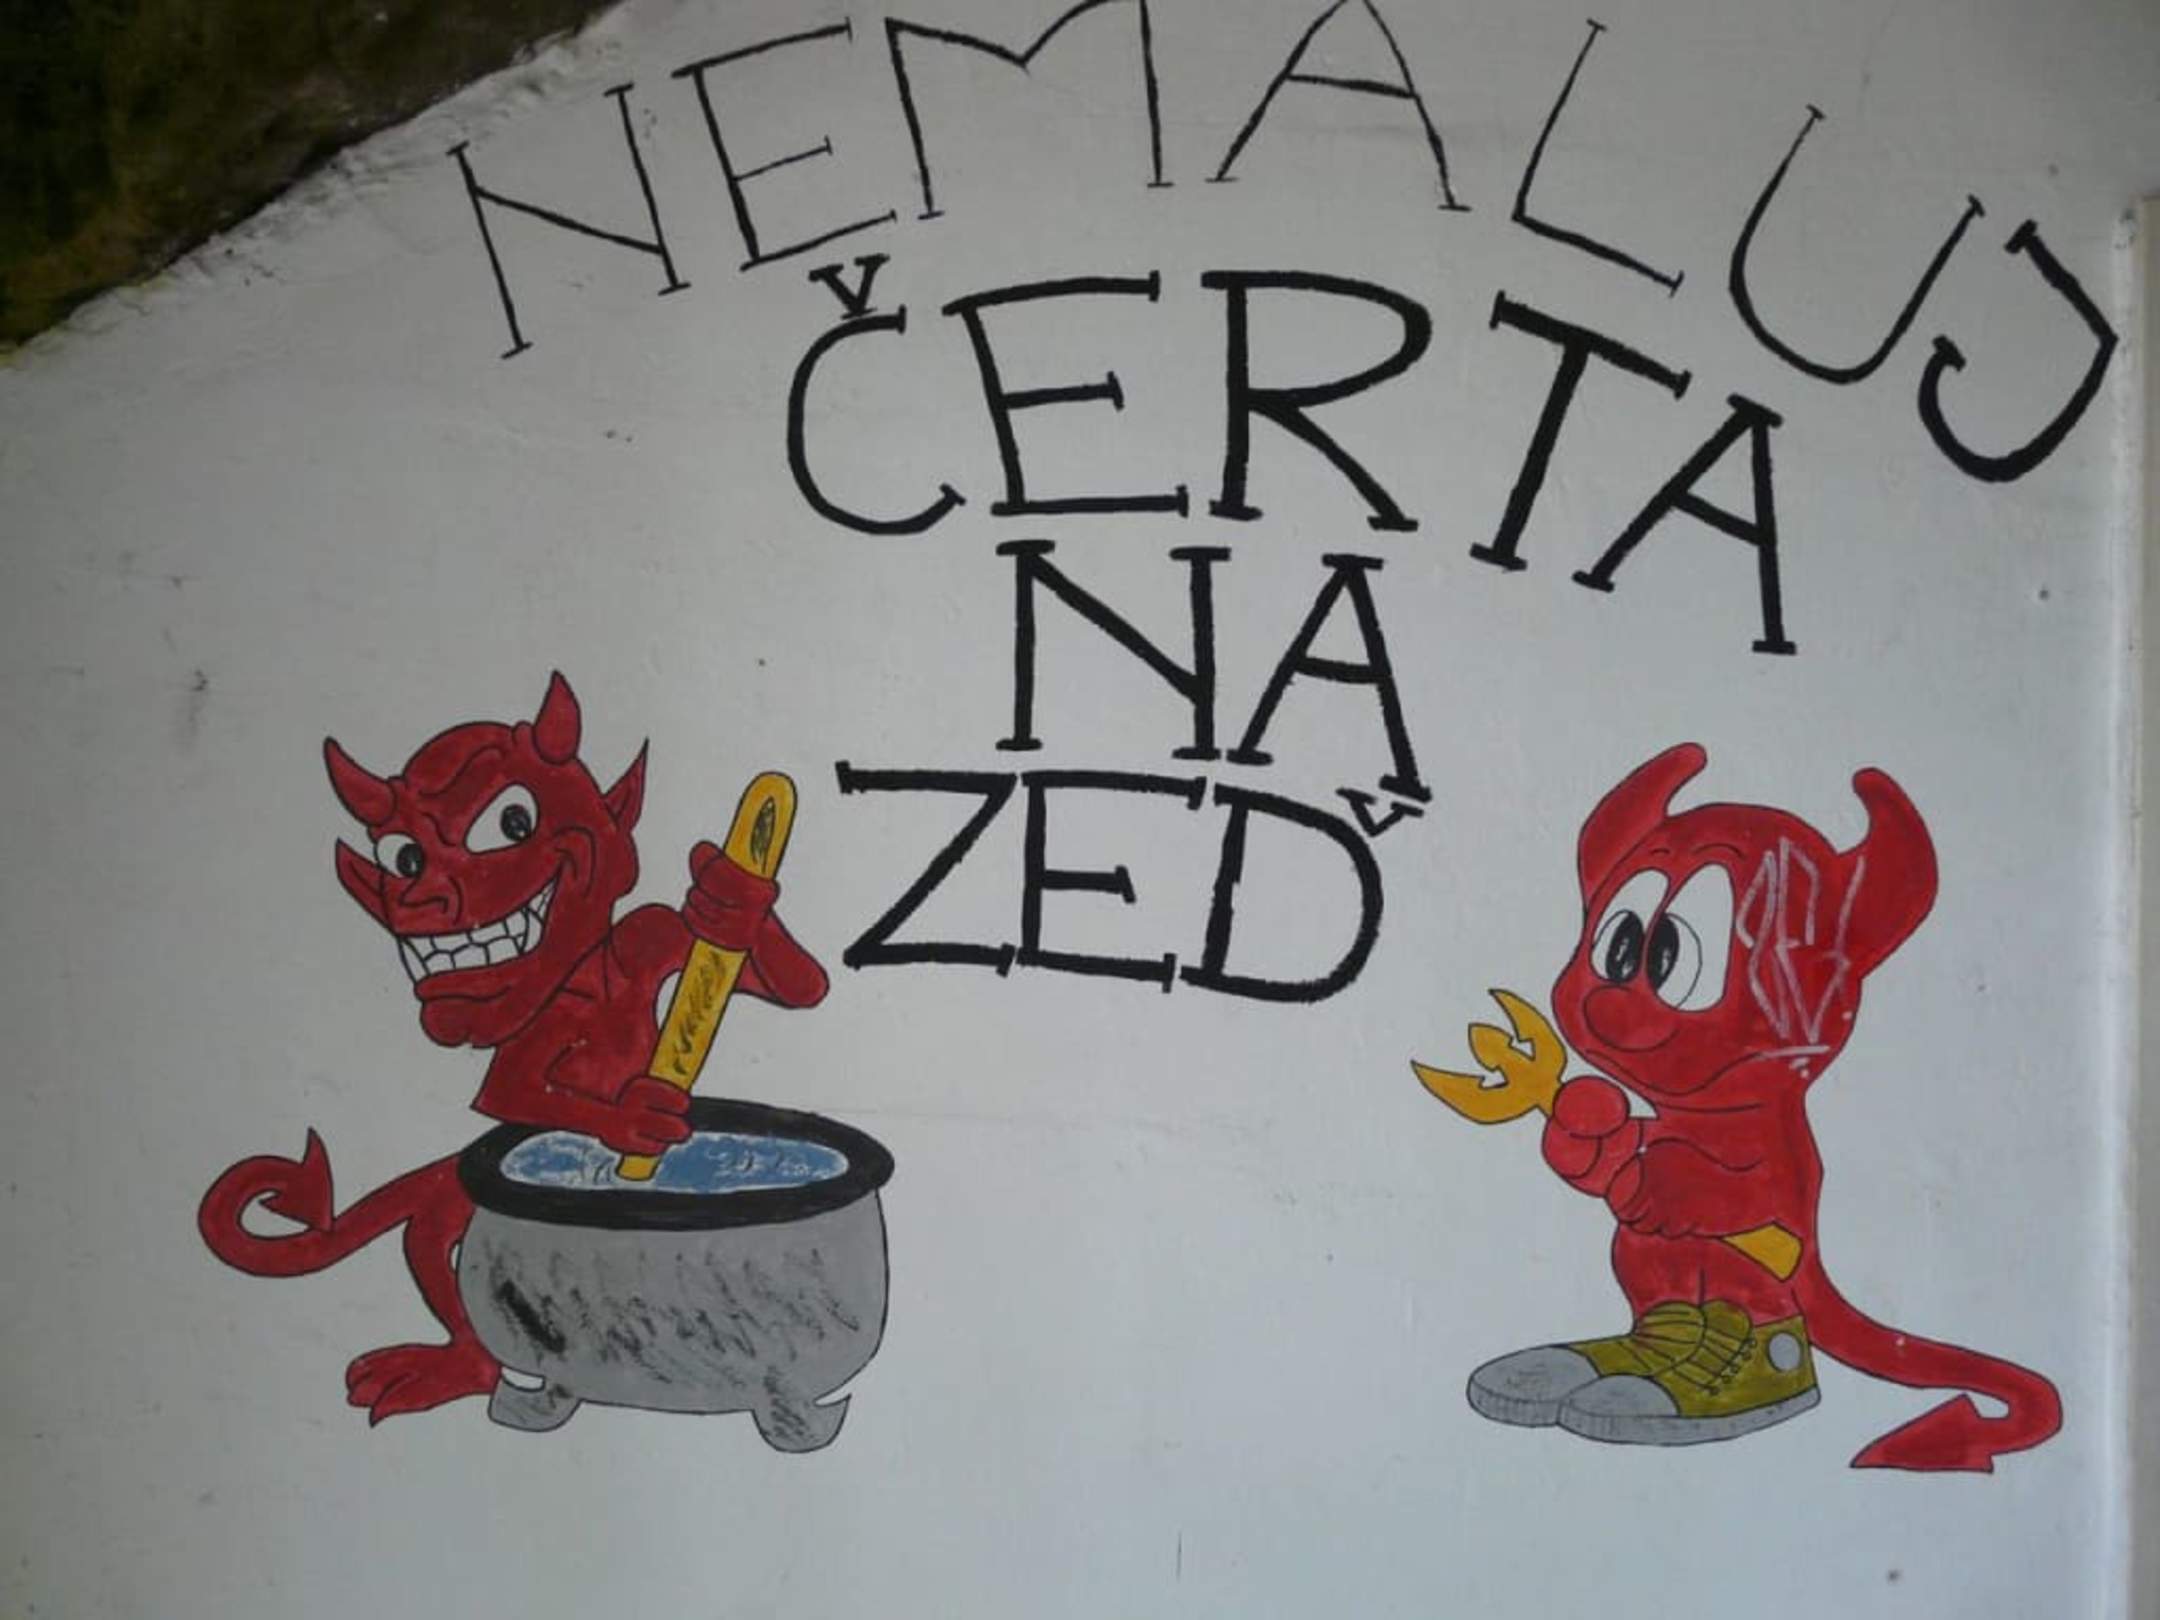 NEMALUJ
ČERTA
NA
ZEĎ